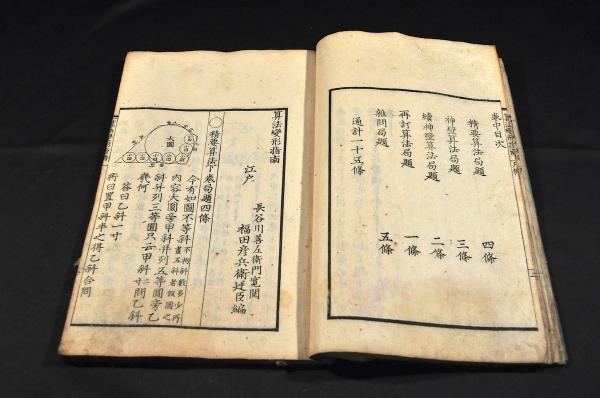 卷中目次
精要算法局題 四條
神壁算法局題 三條
續神壁算法局題 二條
再訂算法局題 一條
雜問局題 五條
通計一十五條
算法變形指南
江戸
長谷川善左衛門寛閲
福田彦兵衛廷臣編
○精要算法下卷局題四條
今有如圖不等斜不拘斜數多少所畫五斜者假圖之
內容大圓旁甲斜并列五等圓旁乙
斜并列三等圓只云甲斜二寸問乙斜
幾何
答曰乙斜一寸
術曰置甲斜半之得乙斜合問
大圓